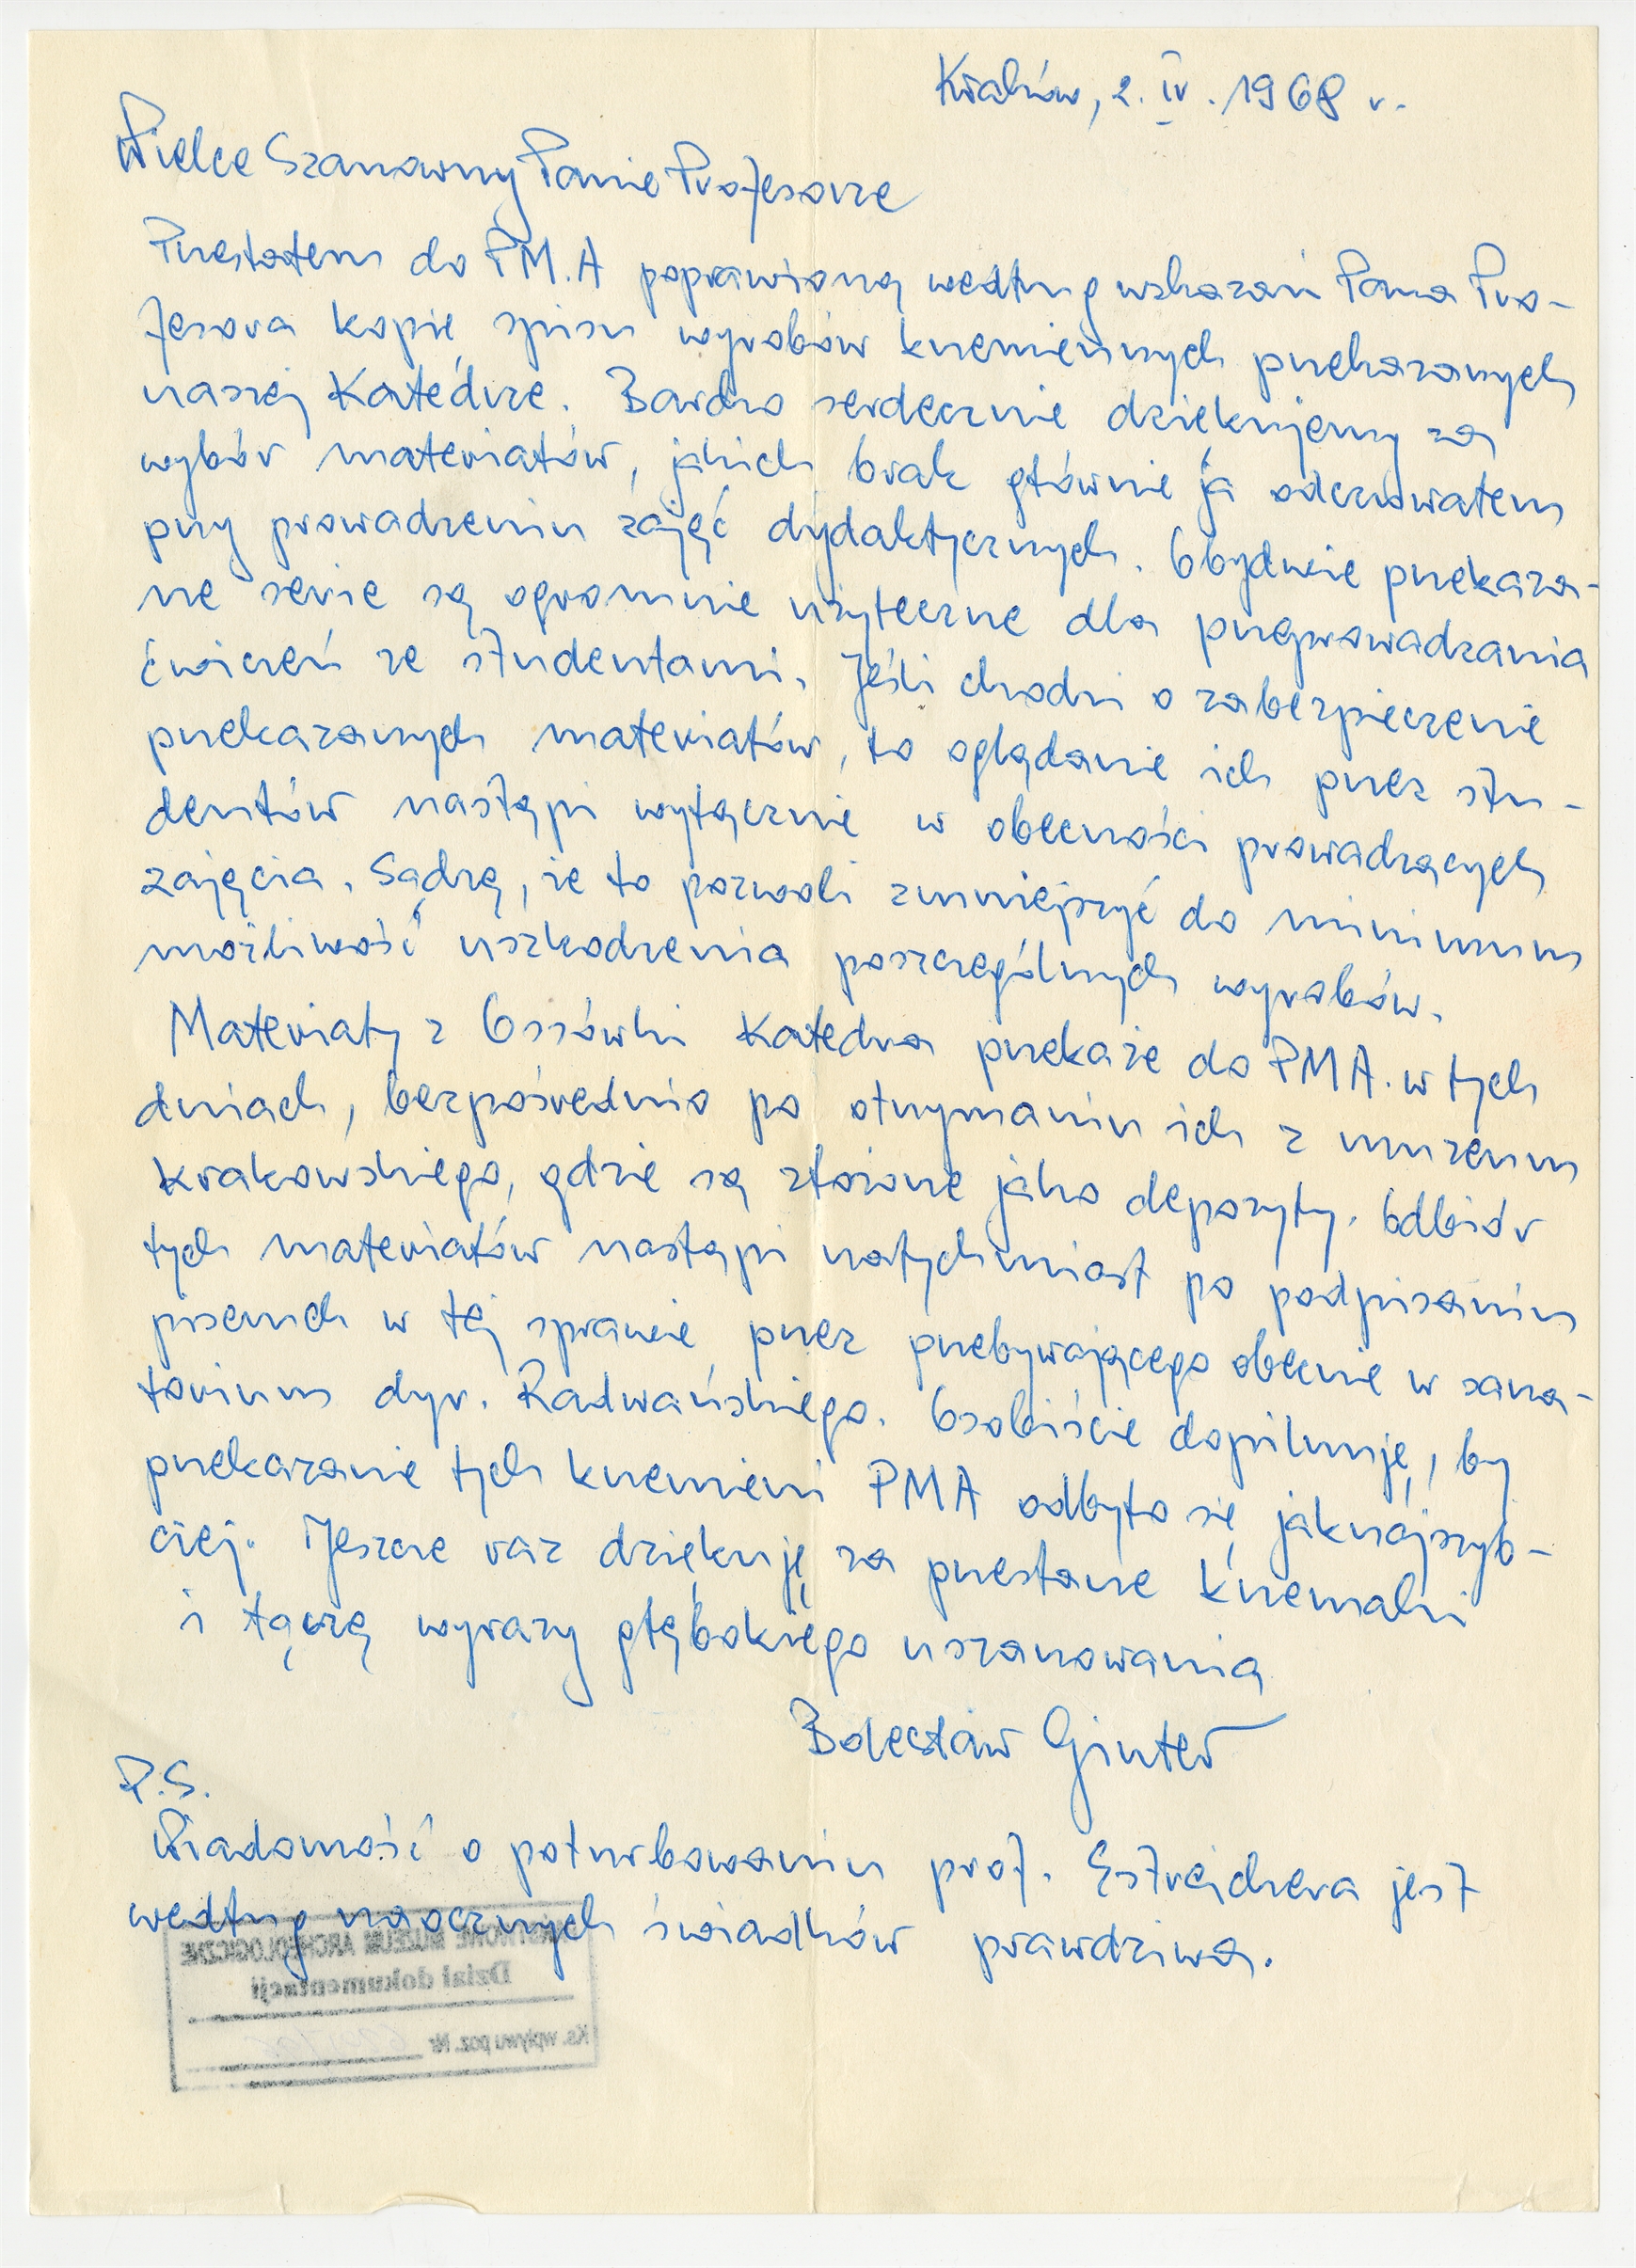 Kraków, 2. IV. 1968 r.
Wielce Szanowny Panie Profesorze
Przesłałem do PM.A poprawioną według wskazań Pana Pro-
fesora kopię spisu wyrobów krzemiennych przekazanych
naszej Katedrze. Bardzo serdecznie dziękujemy za
wybór materiałów, jakich brak głównie ja odczuwałem
przy prowadzeniu zajęć dydaktycznych. Obydwie przekaza-
ne serie są ogromnie użyteczne dla przeprowadzania
ćwiczeń ze studentami. Jeśli chodzi o zabezpieczenie
przekazanych materiałów, to oglądanie ich przez stu-
dentów nastąpi wyłącznie w obecności prowadzących
zajęcia. Sądzę, że to pozwoli zmniejszyć do minimum
możliwość uszkodzenia poszczególnych wyrobów.
Materiały z Ossówki Katedra przekaże do PMA. w tych
dniach, bezpośrednio po otrzymaniu ich z muzeum
krakowskiego, gdzie są złożone jako depozyty. Odbiór
tych materiałów nastąpi natychmiast po podpisaniu
pisemch w tej sprawie przez przebywającego obecnie w sana-
torium dyr. Radwańskiego. Osobiście dopilnuję, by
przekazanie tych krzemieni PMA odbyło się jaknajszyb-
ciej. Jeszcze raz dziękuję za przesłane krzemaki
i łączę wyrazy głębokiego uszanowania
Bolesław Ginter
P.S.
Wiadomość o poturbowaniu prof. Estreichera jest
według naocznych świadków prawdziwa.
PAŃSTWOWE MUZEUM ARCHEOLOGICZNE
Dział dokumentacji
Ks. wpływu poz. Nr